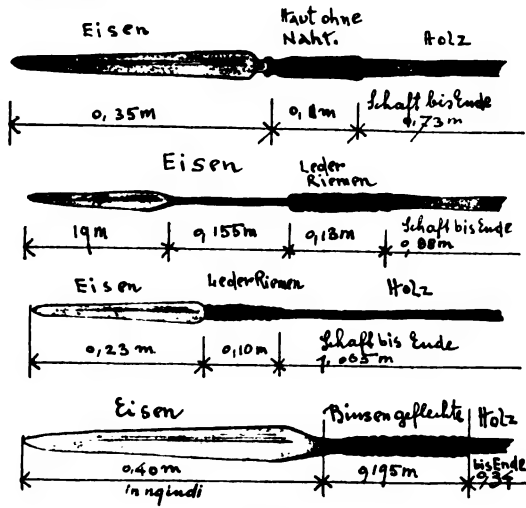 Eisen
Haut ohne
Naht.
Holz
0,35m
0,11m
Schaft bis Ende
0,73m
Eisen
Leder
Riemen
19m
0,155m
0,13m
Schaft bis Ende
0,88m
Eisen
Leder Riemen
Holz
0,23m
0,10m
Schaft bis Ende
Eisen
Binsengeflechte
Holz
0,40m
0,195m
bis Ende
in nqindi